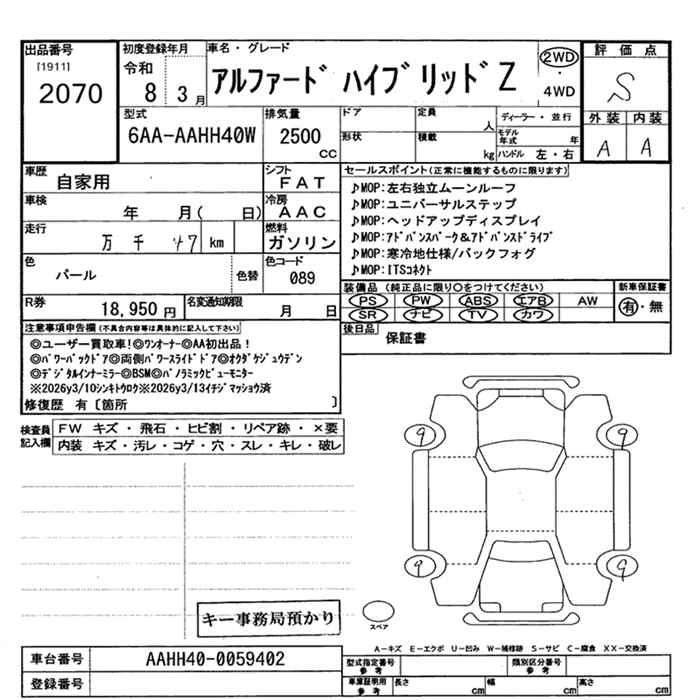 出品番号
[1911]
2070
初度登録年月
令和
8 3月
車名・グレード
アルファード ハイブリッド Z
2WD
・
4WD
評価点
S
外装 内装
A A
型式
6AA-AAHH40W
排気量
2500
CC
ドア
形状
定員
人
積載
kg
ディーラー・並行
モデル年式 年
ハンドル 左・右
車歴
自家用
シフト
FAT
車検
年 月( 日)
冷房
AAC
走行
万 千 47 km
燃料
ガソリン
色
パール
色替
色コード
089
R券
18,950円
名変通知期限
月 日
セールスポイント(正常に機能するものに限ります)
♪MOP:左右独立ムーンルーフ
♪MOP:ユニバーサルステップ
♪MOP:ヘッドアップディスプレイ
♪MOP:アドバンスパーク&アドバンスドライブ
♪MOP:寒冷地仕様/バックフォグ
♪MOP:ITSコネクト
装備品 (純正品に限り〇をつけてください)
PS PW ABS エアB AW
SR ナビ TV カワ
新車保証書
有・無
後日品
保証書
注意事項申告欄(不具合内容等は具体的に記入して下さい)
◎ユーザー買取車!◎ワンオーナー◎AA初出品!
◎パワーバックドア◎両側パワースライドドア◎オクダケジュウデン
◎デジタルインナーミラー◎BSM◎パノラミックビューモニター
※2026y3/10シンキトウロク※2026y3/13イチジマッショウ済
修復歴 有〔箇所 〕
検査員記入欄
FW キズ・飛石・ヒビ割・リペア跡・×要
内装 キズ・汚レ・コゲ・穴・スレ・キレ・破レ
9 9
9 9
キー事務局預かり
スペア
A-キズ E-エクボ U-凹み W-補修跡 S-サビ C-腐食 XX-交換済
車台番号 AAHH40-0059402
登録番号
型式指定番号 参考
類別区分番号 参考
車庫証明用 参考
長さ cm 幅 cm 高さ cm